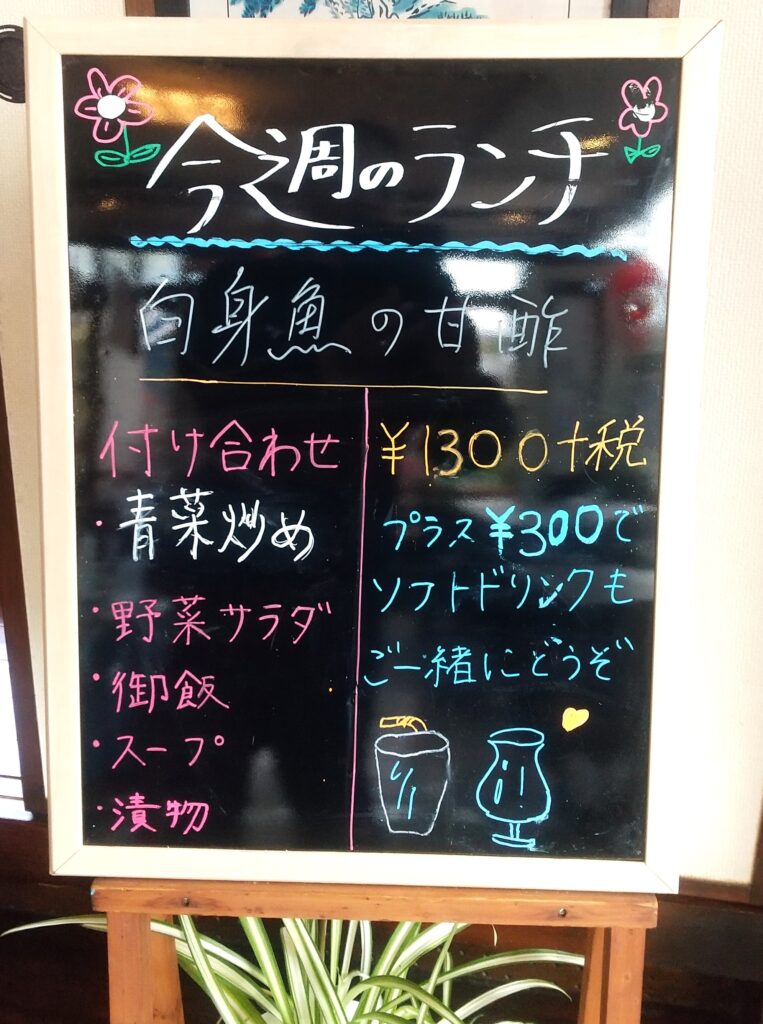 今週のランチ
白身魚の甘酢
付け合わせ
・青菜炒め
・野菜サラダ
・御飯
・スープ
・漬物
¥1300+税
プラス¥300で
ソフトドリンクも
ご一緒にどうぞ